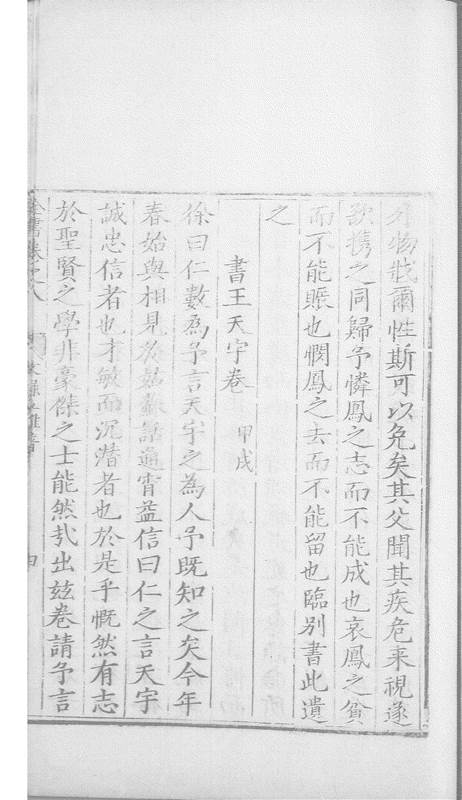 外物戕爾性斯可以免矣其父聞其疾危來視遂
欲携之同歸予憐鳳之志而不能成也哀鳳之貧
而不能賑也憫鳳之去而不能留也臨別書此遺
之
書王天宇卷 甲戌
徐曰仁數為予言天宇之為人予既知之矣今年
春始與相見於姑蘇話通宵益信曰仁之言天宇
誠忠信者也才敏而沉潛者也於是乎慨然有志
於聖賢之學非豪傑之士能然哉出兹卷請予言
全書卷之八